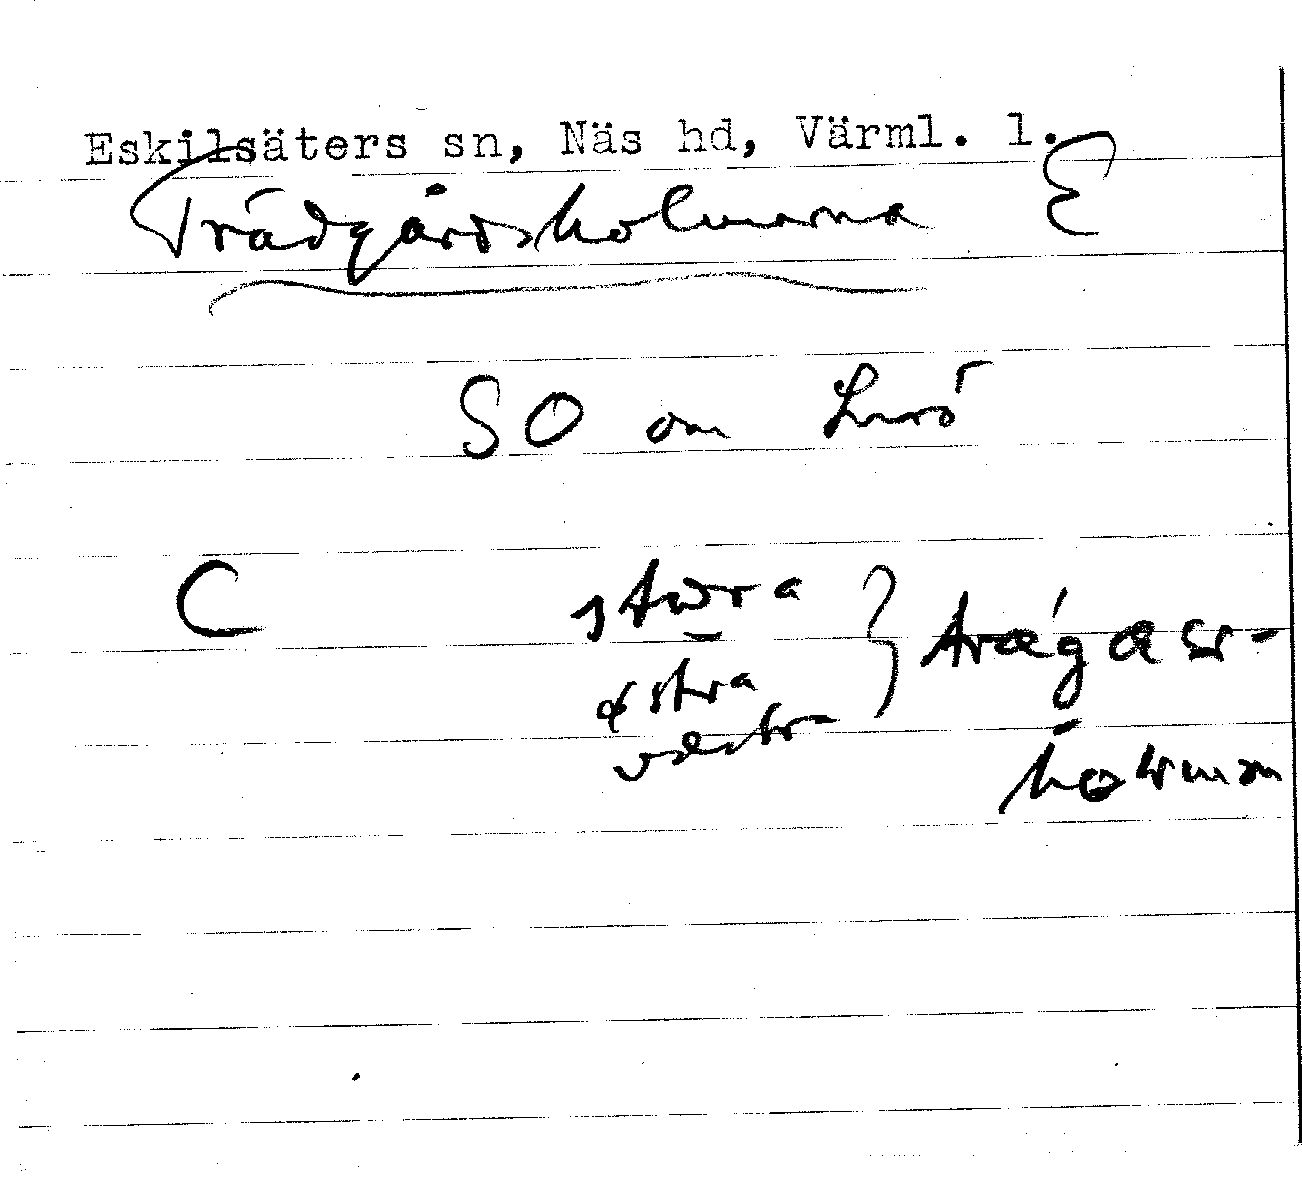 Eskilsäters sn, Näs hd, Värml. l.
Trädgårdsholmarna E
SO om Lurö
C stora
østra
væstra